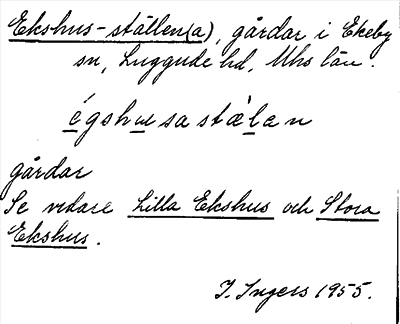 Ekshus-ställen(a), gårdar i Ekeby
sn, Luggude hd, Mhs län.
égshusastälan
gårdar
Se vidare Lilla Ekshus och Stora
Ekshus.
I. Ingers 1955.